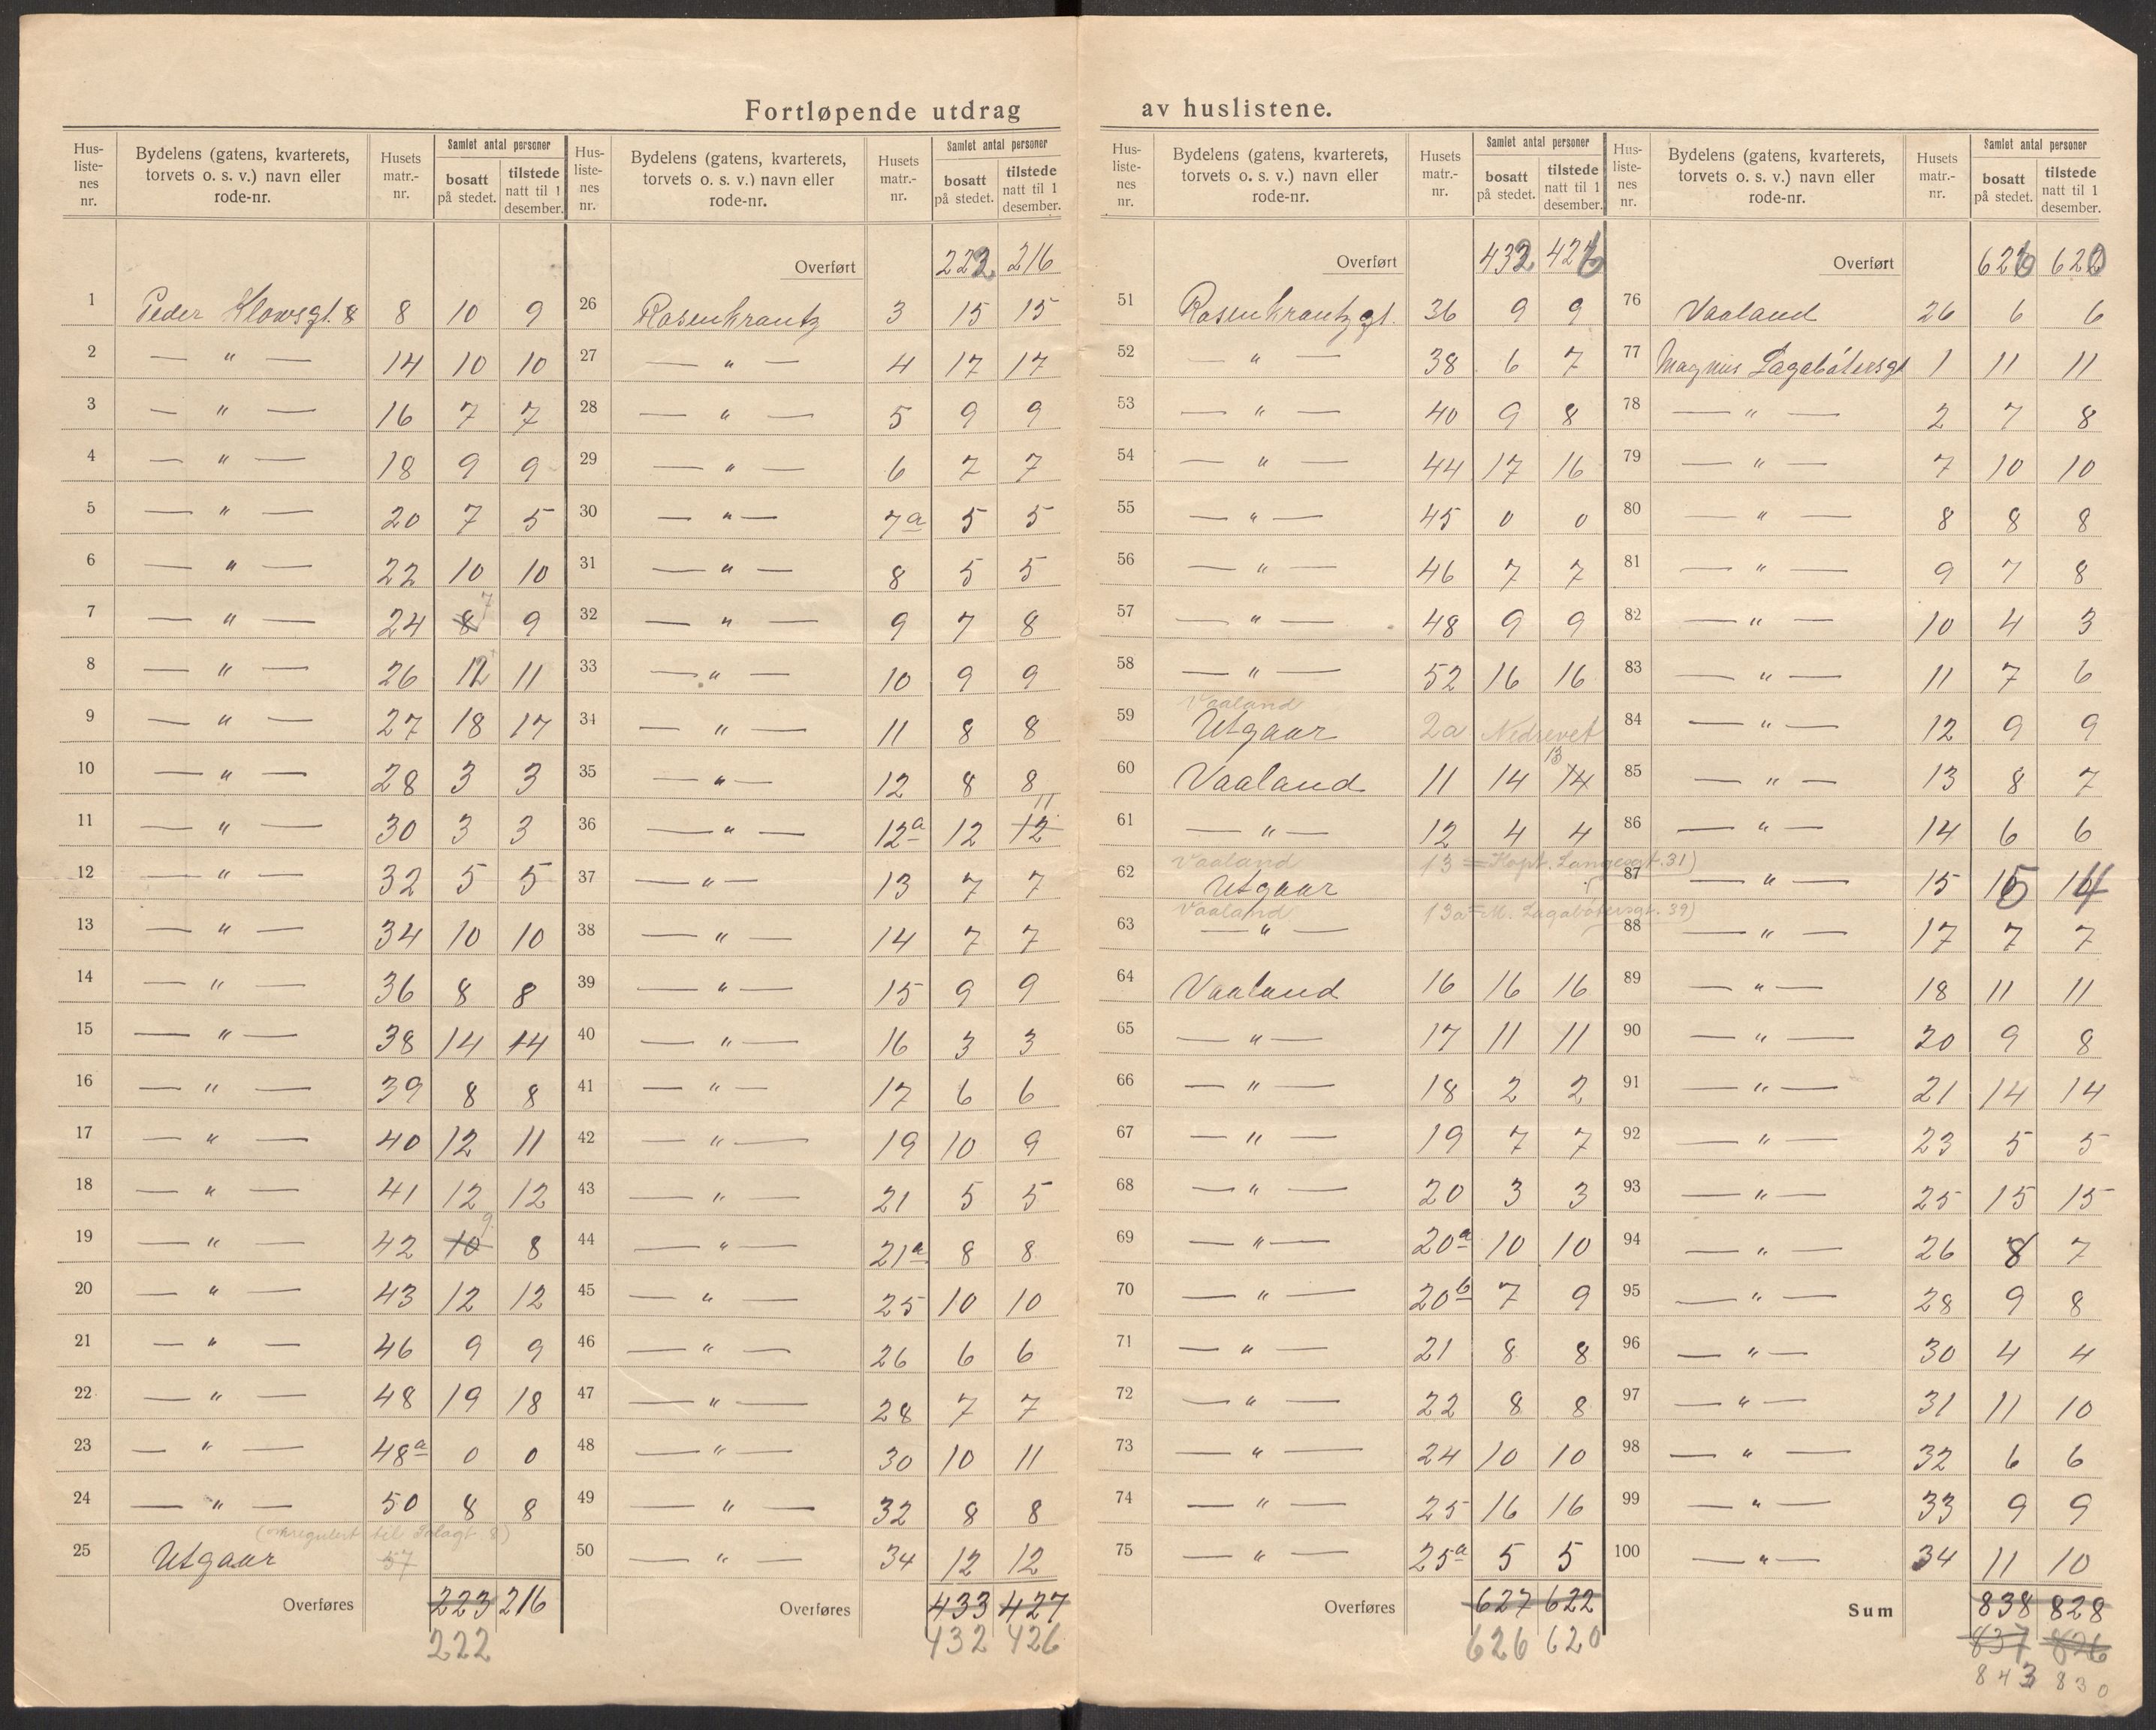 Fortløpende utdrag av huslistene.
Hus-liste-nes nr. | Bydelens (gatens, kvarterets, torvets o. s. v.) navn eller rode-nr. | Husets matr.-nr. | Samlet antal personer bosatt på stedet. | tilstede natt til 1 desember.
1 Peder Klowsgt. 8 8 10 9
2 — " — 14 10 10
3 — " — 16 7 7
4 — " — 18 9 9
5 — " — 20 7 5
6 — " — 22 10 10
7 — " — 24 8 7 9
8 — " — 26 12 11
9 — " — 27 18 17
10 — " — 28 3 3
11 — " — 30 3 3
12 — " — 32 5 5
13 — " — 34 10 10
14 — " — 36 8 8
15 — " — 38 14 14
16 — " — 39 8 8
17 — " — 40 12 11
18 — " — 41 12 12
19 — " — 42 10 9 8
20 — " — 43 12 12
21 — " — 46 9 9
22 — " — 48 19 18
23 — " — 48a 0 0
24 — " — 50 8 8
(omregulert til 8)
25 Utgaar 57
Overføres 223 216
222
Hus-liste-nes nr. | Bydelens (gatens, kvarterets, torvets o. s. v.) navn eller rode-nr. | Husets matr.-nr. | Samlet antal personer bosatt på stedet. | tilstede natt til 1 desember.
Overført 222 216
26 Rosenkrantz 3 15 15
27 — " — 4 17 17
28 — " — 5 9 9
29 — " — 6 7 7
30 — " — 7a 5 5
31 — " — 8 5 5
32 — " — 9 7 8
33 — " — 10 9 9
34 — " — 11 8 8
35 — " — 12 8 8
36 — " — 12a 12 12 11
37 — " — 13 7 7
38 — " — 14 7 7
39 — " — 15 9 9
40 — " — 16 3 3
41 — " — 17 6 6
42 — " — 19 10 9
43 — " — 21 5 5
44 — " — 21a 8 8
45 — " — 25 10 10
46 — " — 26 6 6
47 — " — 28 7 7
48 — " — 30 10 11
49 — " — 32 8 8
50 — " — 34 12 12
Overføres 433 427
432 426
Hus-liste-nes nr. | Bydelens (gatens, kvarterets, torvets o. s. v.) navn eller rode-nr. | Husets matr.-nr. | Samlet antal personer bosatt på stedet. | tilstede natt til 1 desember.
Overført 432 426
51 Rosenkrantzgt. 36 9 9
52 — " — 38 6 7
53 — " — 40 9 8
54 — " — 44 17 16
55 — " — 45 0 0
56 — " — 46 7 7
57 — " — 48 9 9
58 — " — 52 16 16
Vaaland
59 Utgaar 2a Nedrevet
60 Vaaland 11 14 14 13
61 — " — 12 4 4
Vaaland 13 = Kapt. Langesgt. 31)
62 Utgaar
Vaaland 13a = M. Lagabøtersgt. 39)
63 — " —
64 Vaaland 16 16 16
65 — " — 17 11 11
66 — " — 18 2 2
67 — " — 19 7 7
68 — " — 20 3 3
69 — " — 20a 10 10
70 — " — 20b 7 9
71 — " — 21 8 8
72 — " — 22 8 8
73 — " — 24 10 10
74 — " — 25 16 16
75 — " — 25a 5 5
Overføres 627 622
626 620
Hus-liste-nes nr. | Bydelens (gatens, kvarterets, torvets o. s. v.) navn eller rode-nr. | Husets matr.-nr. | Samlet antal personer bosatt på stedet. | tilstede natt til 1 desember.
Overført 626 620
76 Vaaland 26 6 6
77 Magnus Lagabøtersgt 1 11 11
78 — " — 2 7 8
79 — " — 7 10 10
80 — " — 8 8 8
81 — " — 9 7 8
82 — " — 10 4 3
83 — " — 11 7 6
84 — " — 12 9 9
85 — " — 13 8 7
86 — " — 14 6 6
87 — " — 15 15 14
88 — " — 17 7 7
89 — " — 18 11 11
90 — " — 20 9 8
91 — " — 21 14 14
92 — " — 23 5 5
93 — " — 25 15 15
94 — " — 26 8 7
95 — " — 28 9 8
96 — " — 30 4 4
97 — " — 31 11 10
98 — " — 32 6 6
99 — " — 33 9 9
100 — " — 34 11 10
Sum 838 828
837 826
843 830